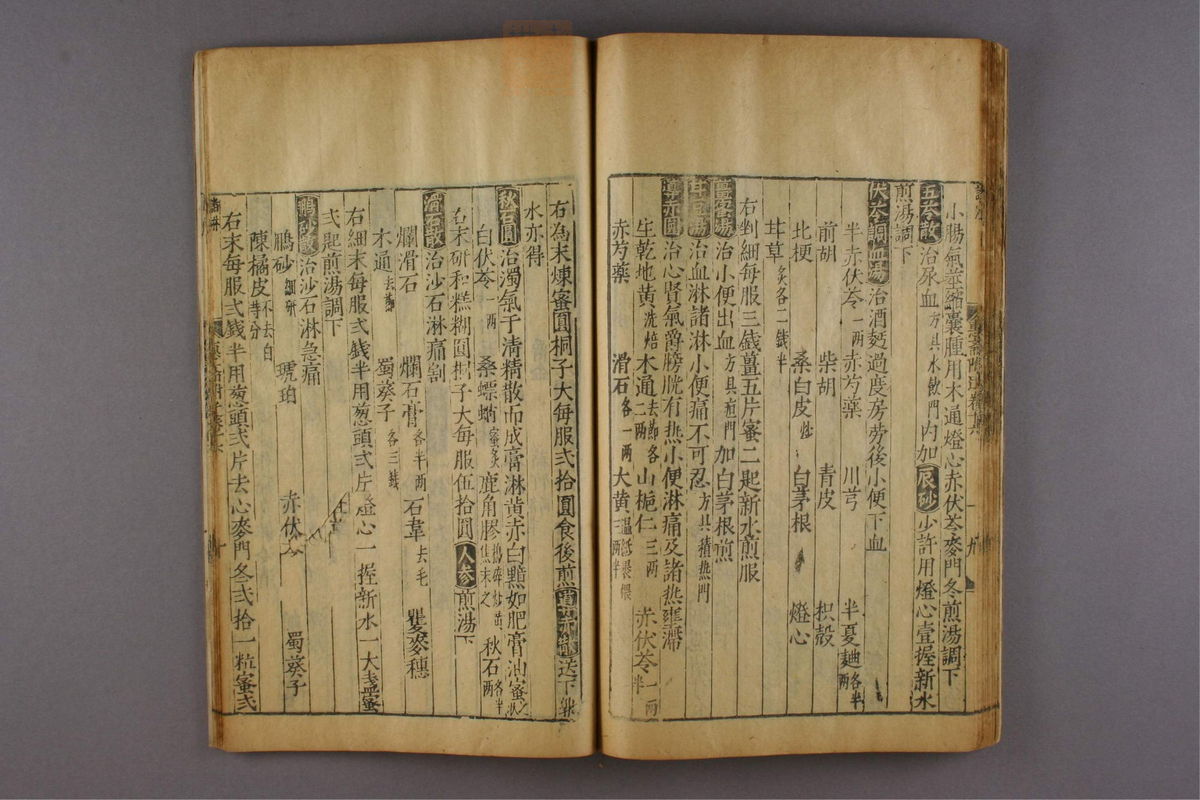 小腸氣莖縮囊腫用木通燈心赤伏苓麥門冬煎湯調下
五苓散治尿血方具水飲門內加辰砂少許用燈心壹握新水
煎湯調下
伏苓調血湯治酒麪過度房勞後小便下血
半赤伏苓一兩赤芍藥 川芎 半夏麯各半兩
前胡 柴胡 青皮 枳殼
北梗 桑白皮炒 白茅根 燈心
甘草炙各二錢半
右剉細每服三錢薑五片蜜二匙新水煎服
治小便出血方具疸門加白茅根煎
治血淋諸淋小便痛不可忍方具積熱門
導赤圓治心腎氣鬱膀胱有热小便淋痛及諸热壅滯
生乾地黃洗焙木通去節各二兩山梔仁三兩赤伏苓一兩半
赤芍藥 滑石各一兩 大黃
右為末煉蜜圓桐子大每服弍拾圓食後煎導赤散送下
水亦得
秋石圓治濁氣干清精散而成膏淋黃赤白黯如肥膏油蜜之狀
白伏苓一兩 桑螵蛸蜜炙鹿角膠搗碎炒黃焦末之秋石各半兩
右末研和糕糊圓桐子大每服伍拾圓人參煎湯下
滑石散治沙石淋痛割
爛滑石 爛石膏各半兩石韋去毛 瞿麥穗
木通去節 蜀葵子各三錢
右細末每服弍錢半用葱頭弍片燈心一握新水一大盞蜜
弍匙煎湯調下
鵬砂散治沙石淋急痛
鵬砂細研 琥珀 赤伏 蜀葵子
陳橘皮不去白等分
右末每服弍錢半用葱頭弍片去心麥門冬弍拾一粒蜜弍